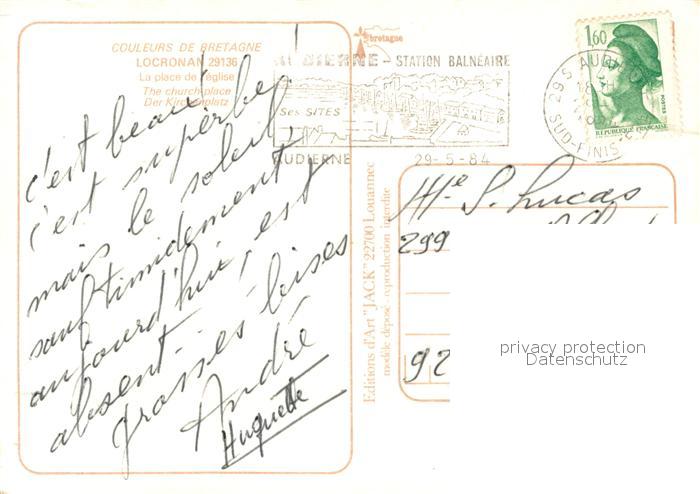 COULEURS DE BRETAGNE
LOCRONAN 29136
La place de l'église
The church place
Der Kirchenplatz
c'est beau!
c'est superbe!
mais le soleil,
sauf timidement
aujourd'hui, est
absent...
grosses bises
André
Huguette
bretagne
AUDIERNE - STATION BALNÉAIRE
Ses SITES
AUDIERNE 29-5-84
29 S AUDI
SUD-FINIS
1,60
POSTES
REPUBLIQUE FRANÇAISE
Editions d'Art "JACK" 22700 Louannec
modèle déposé - reproduction interdite
Mle S. Lucas
299
92
privacy protection
Datenschutz